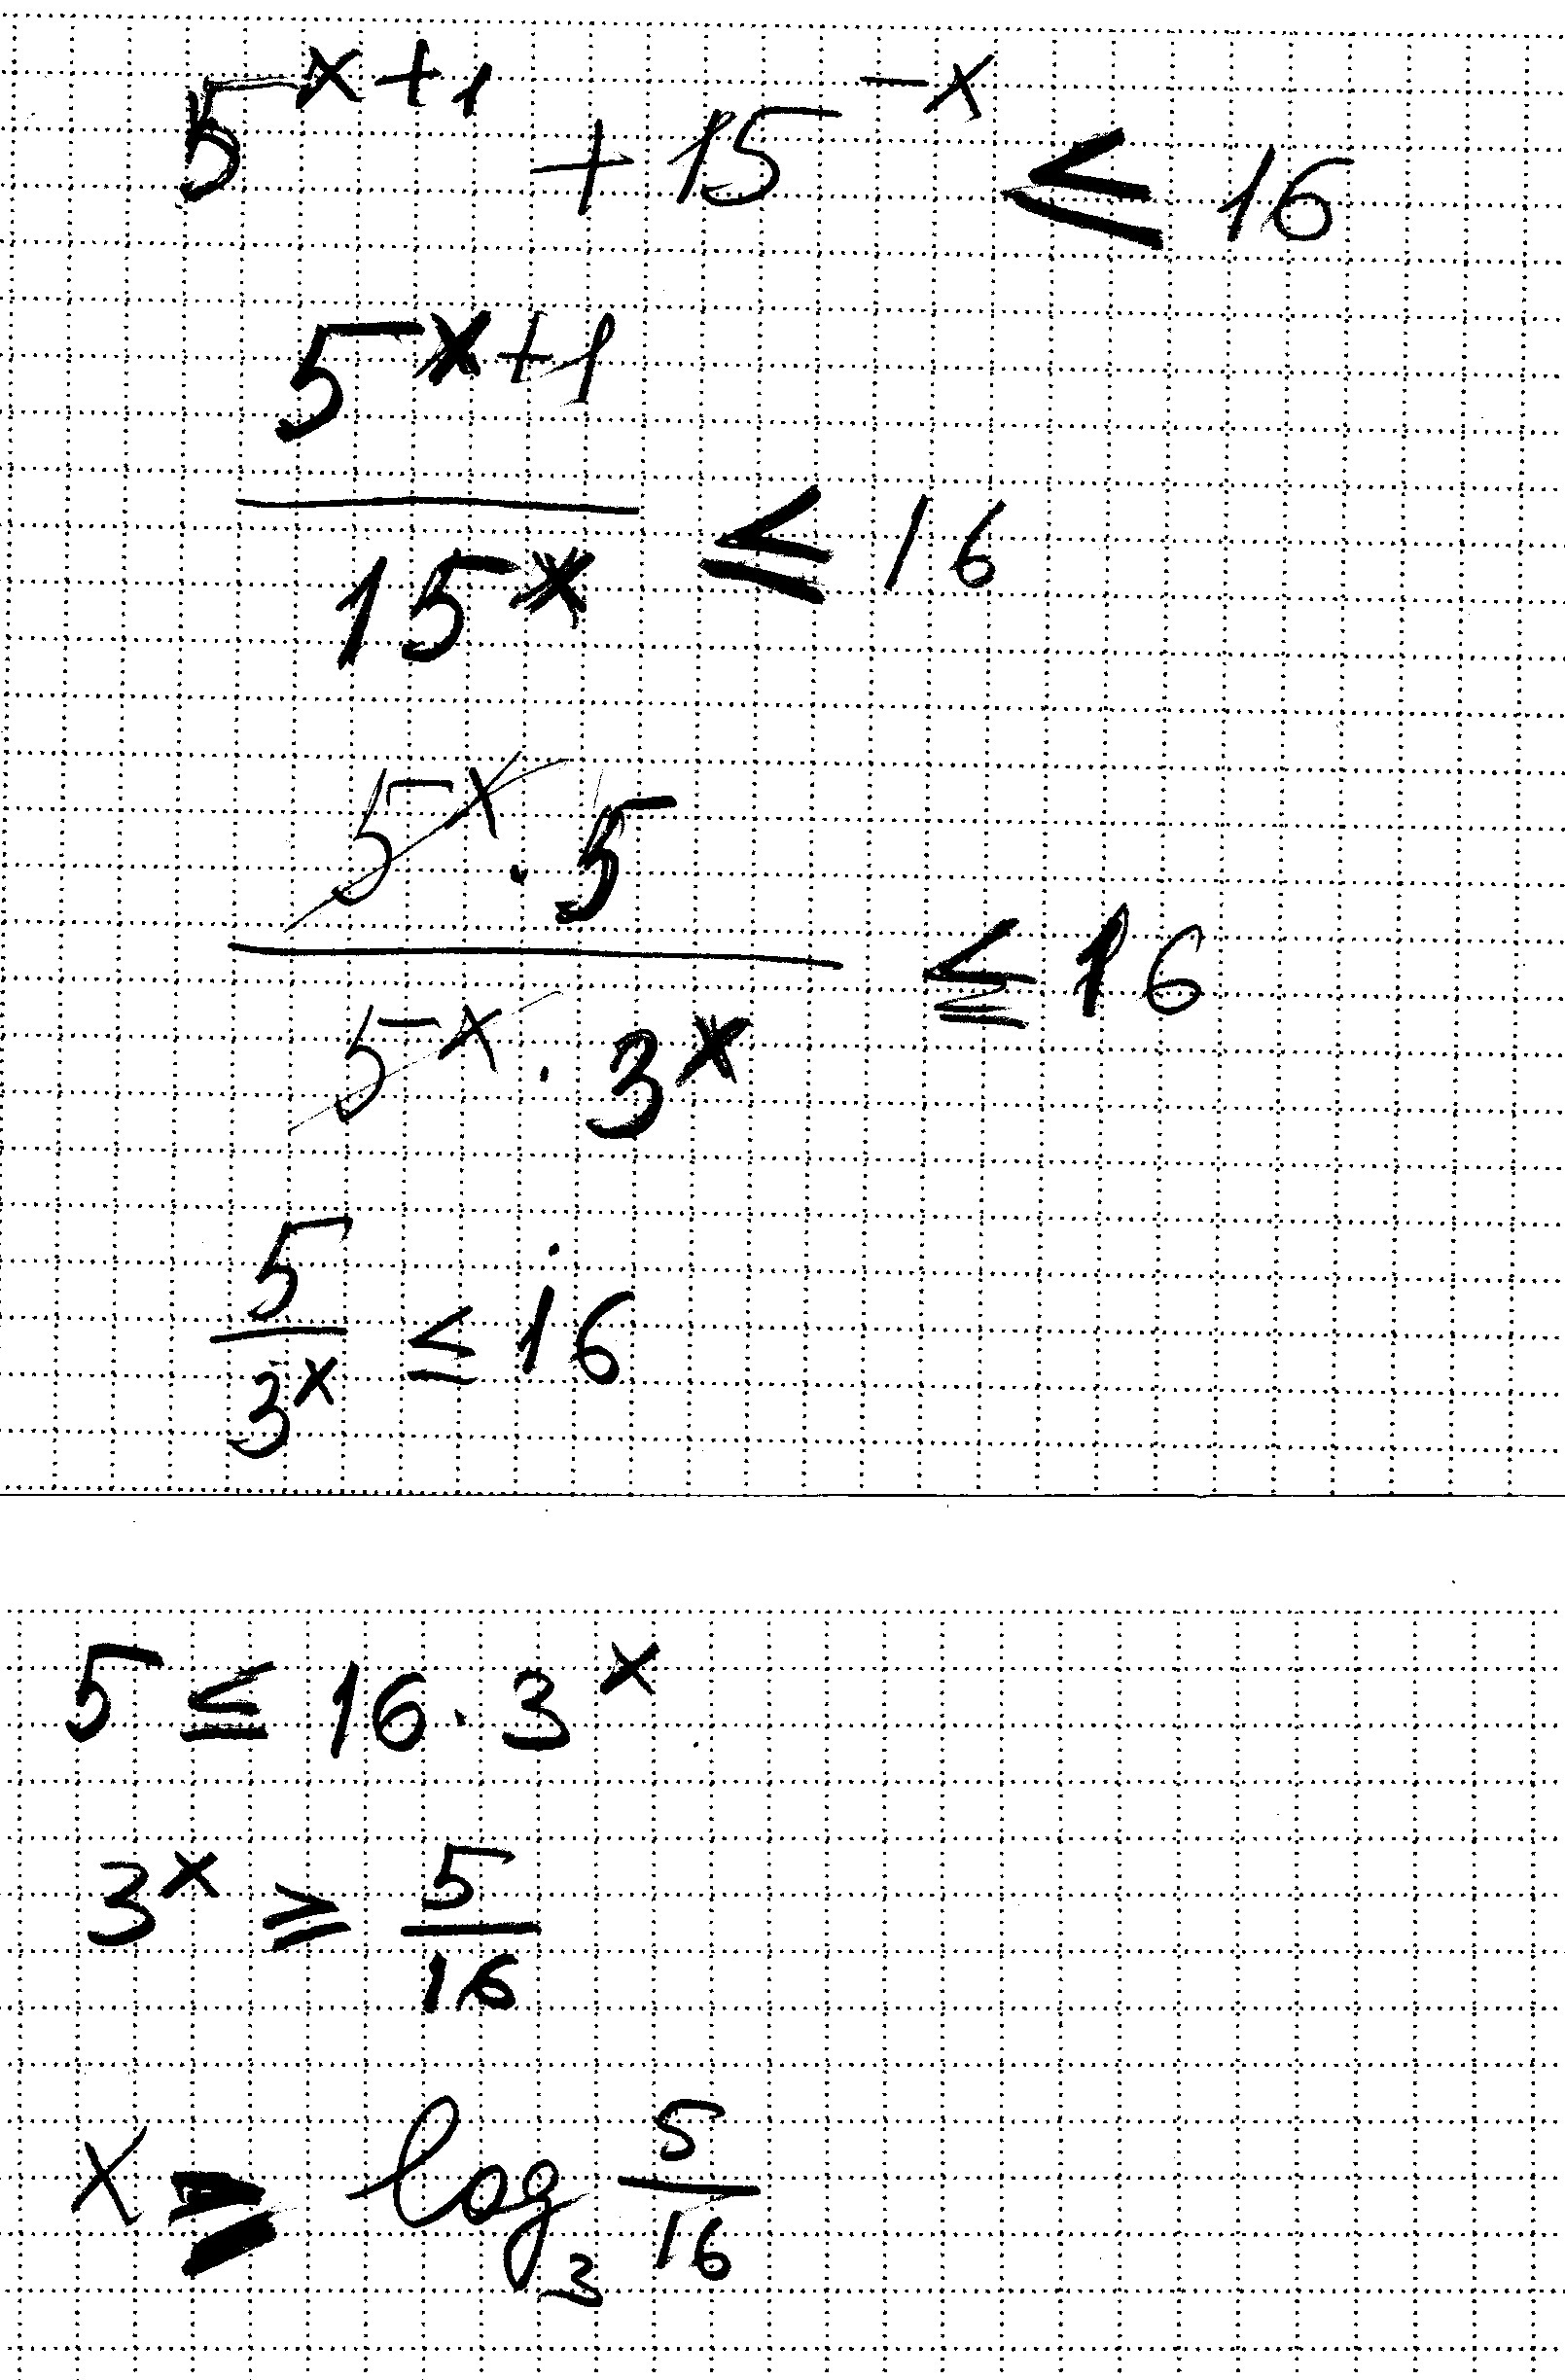 5^{x+1} + 15^{-x} ≤ 16
\frac{5^{x+1}}{15^x} ≤ 16
\frac{5^x · 5}{5^x · 3^x} ≤ 16
\frac{5}{3^x} ≤ 16
5 ≤ 16 · 3^x
3^x ≥ \frac{5}{16}
x ≥ log_3 \frac{5}{16}